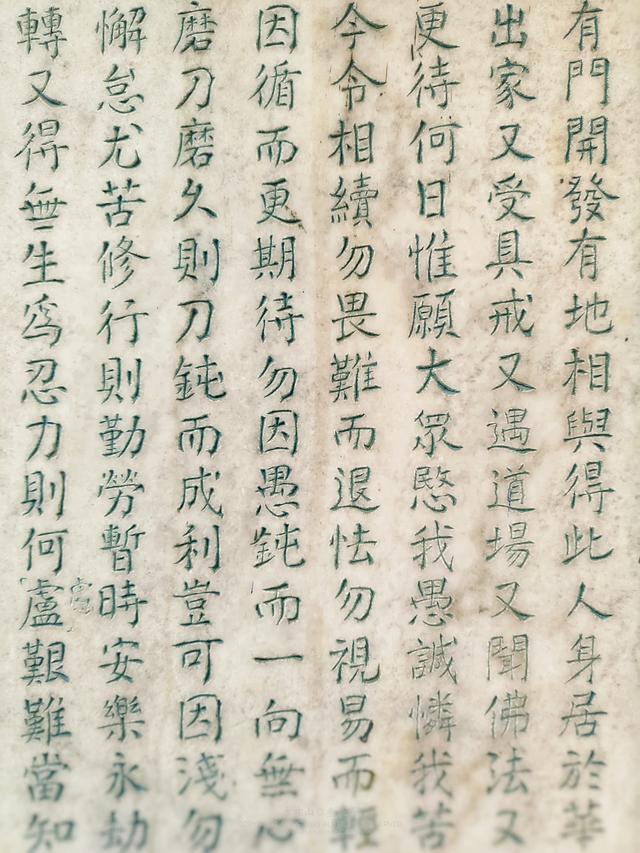 有門開發有地相與得此人身居於華
出家又受具戒又遇道場又聞佛法又
更待何日惟願大眾愍我愚誠憐我苦
今令相續勿畏難而退怯勿視易而輕
因循而更期待勿因愚鈍而一向無心
磨刀磨久則刀鈍而成利豈可因淺勿
懈怠尤苦修行則勤勞暫時安樂永劫
轉又得無生為忍力則何盧艱難當知